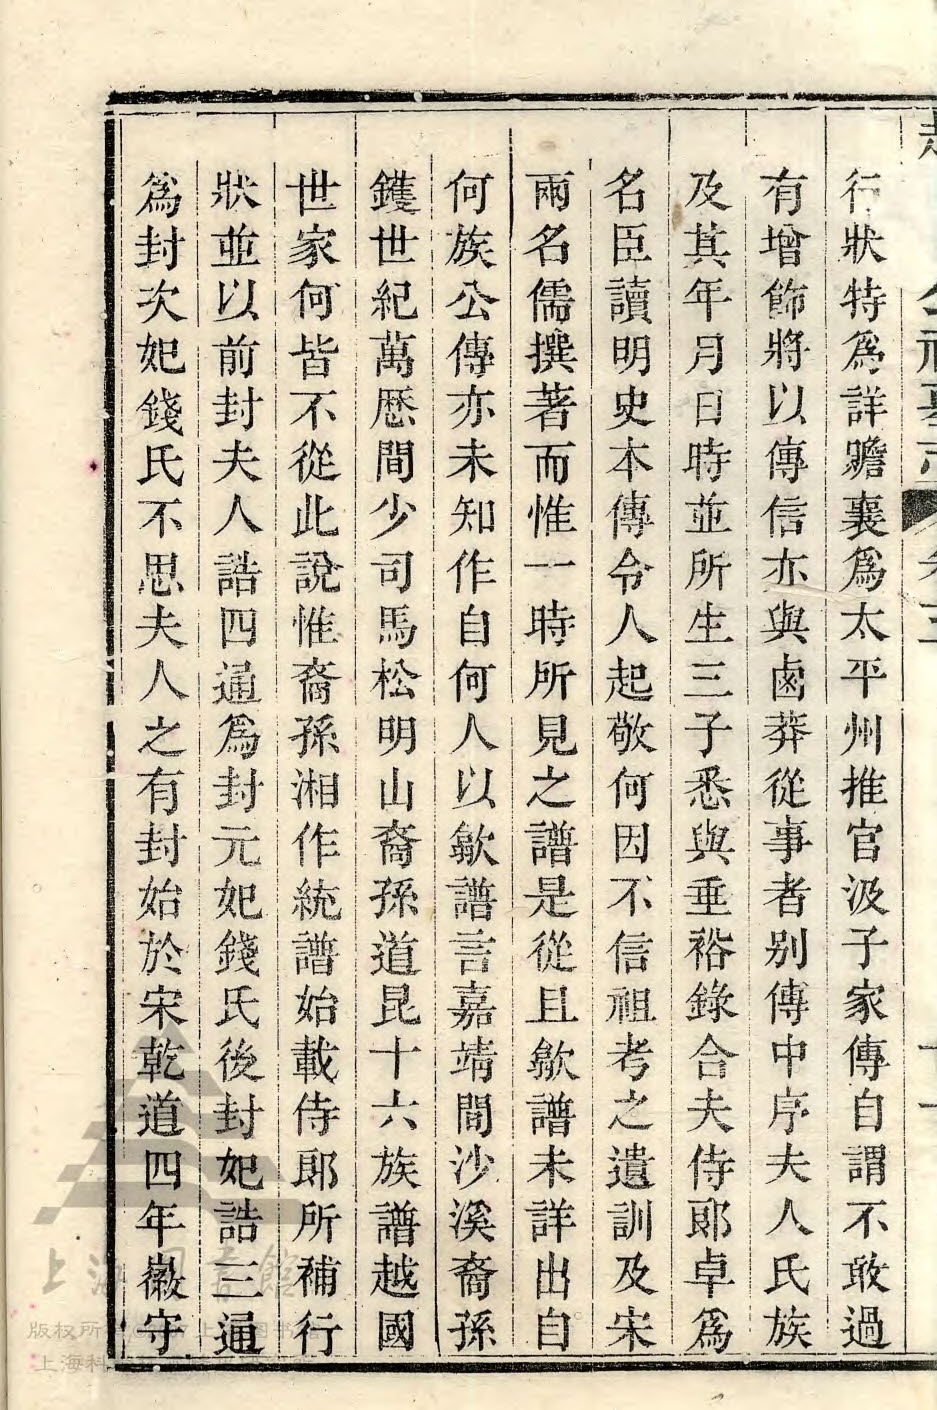 行狀特爲詳贍襄爲太平州推官汲子家傳自謂不敢過
有增飾將以傳信亦與鹵莽從事者别傳中序夫人氏族
及其年月日時並所生三子悉與垂裕錄合夫侍郎卓爲
名臣讀明史本傳令人起敬何因不信祖考之遺訓及宋
兩名儒撰著而惟一時所見之譜是從且歙譜未詳出自
何族公傳亦未知作自何人以歙譜言嘉靖間沙溪裔孫
鑊世紀萬歷間少司馬松明山裔孫道昆十六族譜越國
世家何皆不從此說惟裔孫湘作統譜始載侍郎所補行
狀並以前封夫人誥四通爲封元妃錢氏後封妃誥三通
爲封次妃錢氏不思夫人之有封始於宋乾道四年徽守
上海圖書館
版权所
上海科